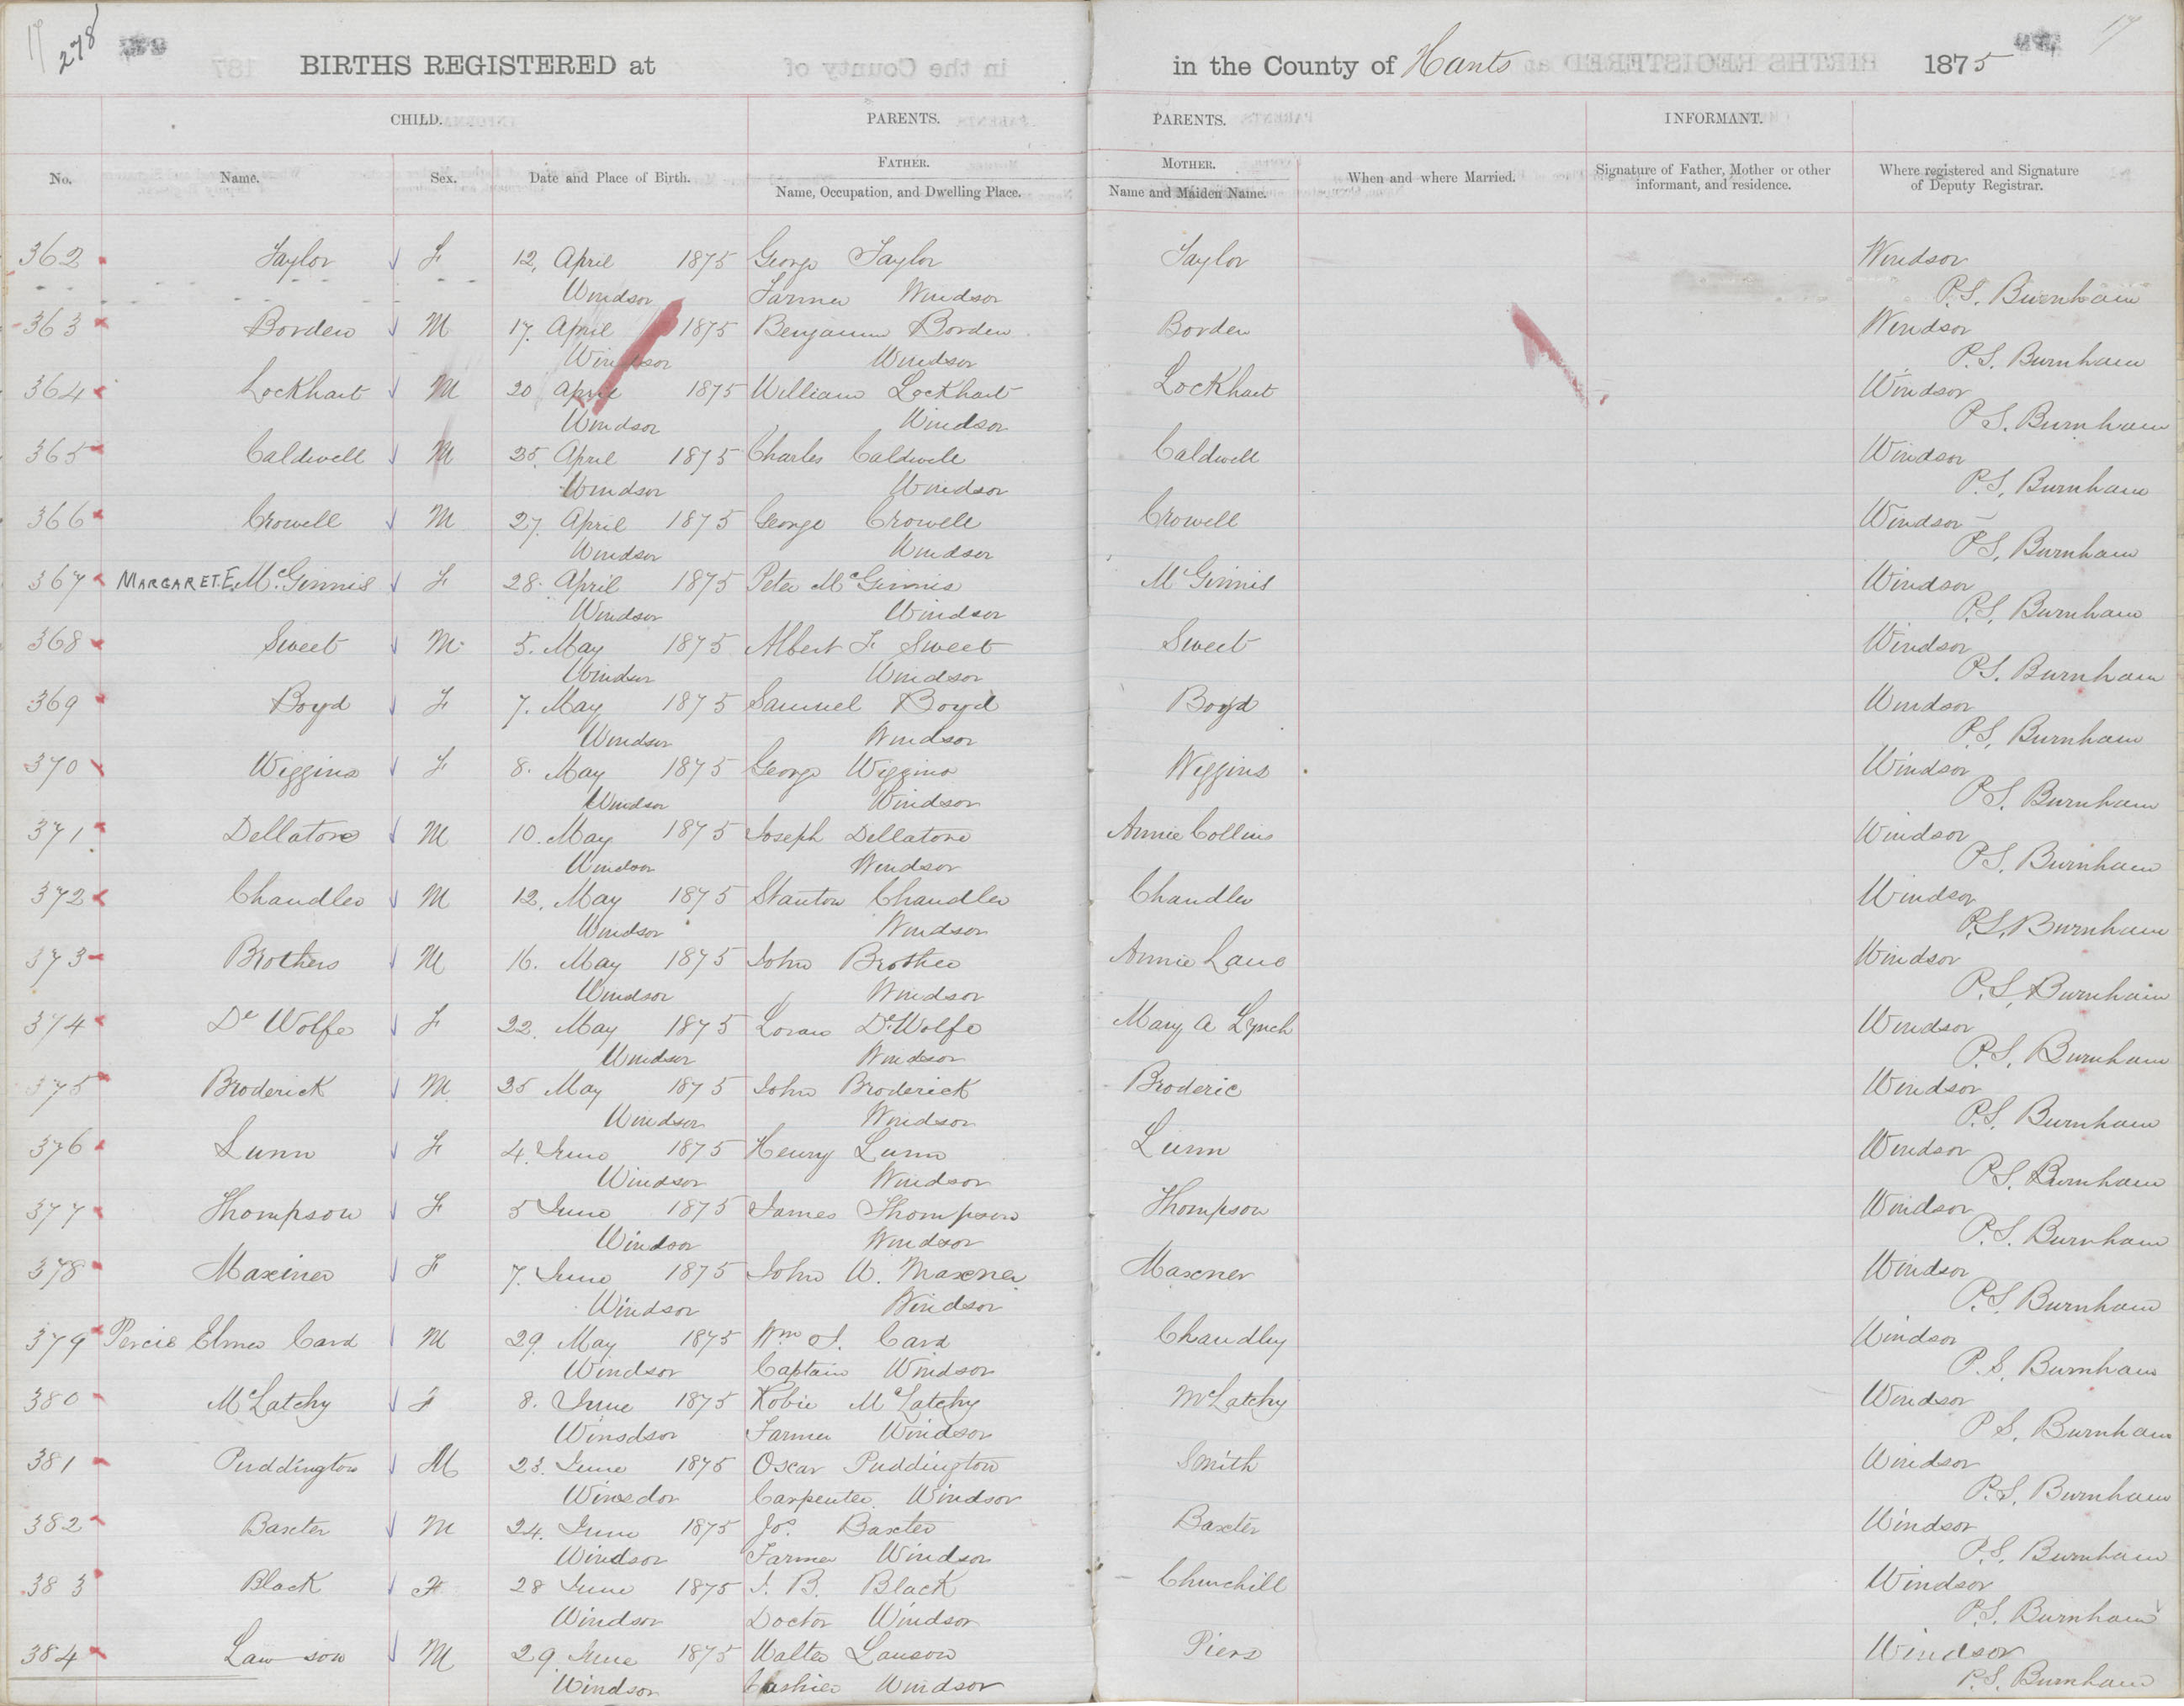 17 278
BIRTHS REGISTERED at in the County of Hants 1875
17
CHILD. PARENTS. PARENTS. INFORMANT.
No. Name. Sex. Date and Place of Birth. FATHER. Name, Occupation, and Dwelling Place. MOTHER. Name and Maiden Name. When and where Married. Signature of Father, Mother or other informant, and residence. Where registered and Signature of Deputy Registrar.
362 Taylor F 12, April 1875 George Taylor Taylor Windsor
Windsor Farmer Windsor P.S. Burnham
363 Borden M 17. April 1875 Benjamin Borden Borden Windsor
Windsor Windsor P.S. Burnham
364 Lockhart M 20 April 1875 William Lockhart Lockhart Windsor
Windsor Windsor P.S. Burnham
365 Caldwell M 25. April 1875 Charles Caldwell Caldwell Windsor
Windsor Windsor P.S. Burnham
366 Crowell M 27. April 1875 George Crowell Crowell Windsor
Windsor Windsor P.S. Burnham
367 MARGARET.E. McGinnis F 28. April 1875 Peter McGinnis McGinnis Windsor
Windsor Windsor P.S. Burnham
368 Sweet M 5. May 1875 Albert F Sweet Sweet Windsor
Windsor Windsor P.S. Burnham
369 Boyd F 7. May 1875 Samuel Boyd Boyd Windsor
Windsor Windsor P.S. Burnham
370 Wiggins F 8. May 1875 George Wiggins Wiggins Windsor
Windsor Windsor P.S. Burnham
371 Dellatore M 10. May 1875 Joseph Dellatore Annie Collins Windsor
Windsor Windsor P.S. Burnham
372 Chandler M 12. May 1875 Stanton Chandler Chandler Windsor
Windsor Windsor P.S. Burnham
373 Brothers M 16. May 1875 John Brother Annie Lane Windsor
Windsor Windsor P.S. Burnham
374 De Wolfe F 22. May 1875 Loran DeWolfe Mary A Lynch Windsor
Windsor Windsor P.S. Burnham
375 Broderick M 25 May 1875 John Broderick Broderic Windsor
Windsor Windsor P.S. Burnham
376 Lunn F 4. June 1875 Henry Lunn Lunn Windsor
Windsor Windsor P.S. Burnham
377 Thompson F 5 June 1875 James Thompson Thompson Windsor
Windsor Windsor P.S. Burnham
378 Maxiner F 7. June 1875 John W. Maxner Maxner Windsor
Windsor Windsor P.S. Burnham
379 Percie Elmer Card M 29. May 1875 Wm Card Chandley Windsor
Windsor Captain Windsor P.S. Burnham
380 McLatchy F 8. June 1875 Robie McLatchy McLatchy Windsor
Winsdsor Farmer Windsor P.S. Burnham
381 Puddington M 23. June 1875 Oscar Puddington Smith Windsor
Winsdor Carpenter. Windsor P.S. Burnham
382 Baxter M 24. June 1875 Jos. Baxter Baxter Windsor
Windsor Farmer Windsor P.S. Burnham
383 Black F 28 June 1875 J. B. Black Churchill Windsor
Windsor Doctor Windsor P.S. Burnham
384 Lawson M 29 June 1875 Walter Lawson Piers Windsor
Windsor Cashier Windsor P.S. Burnham